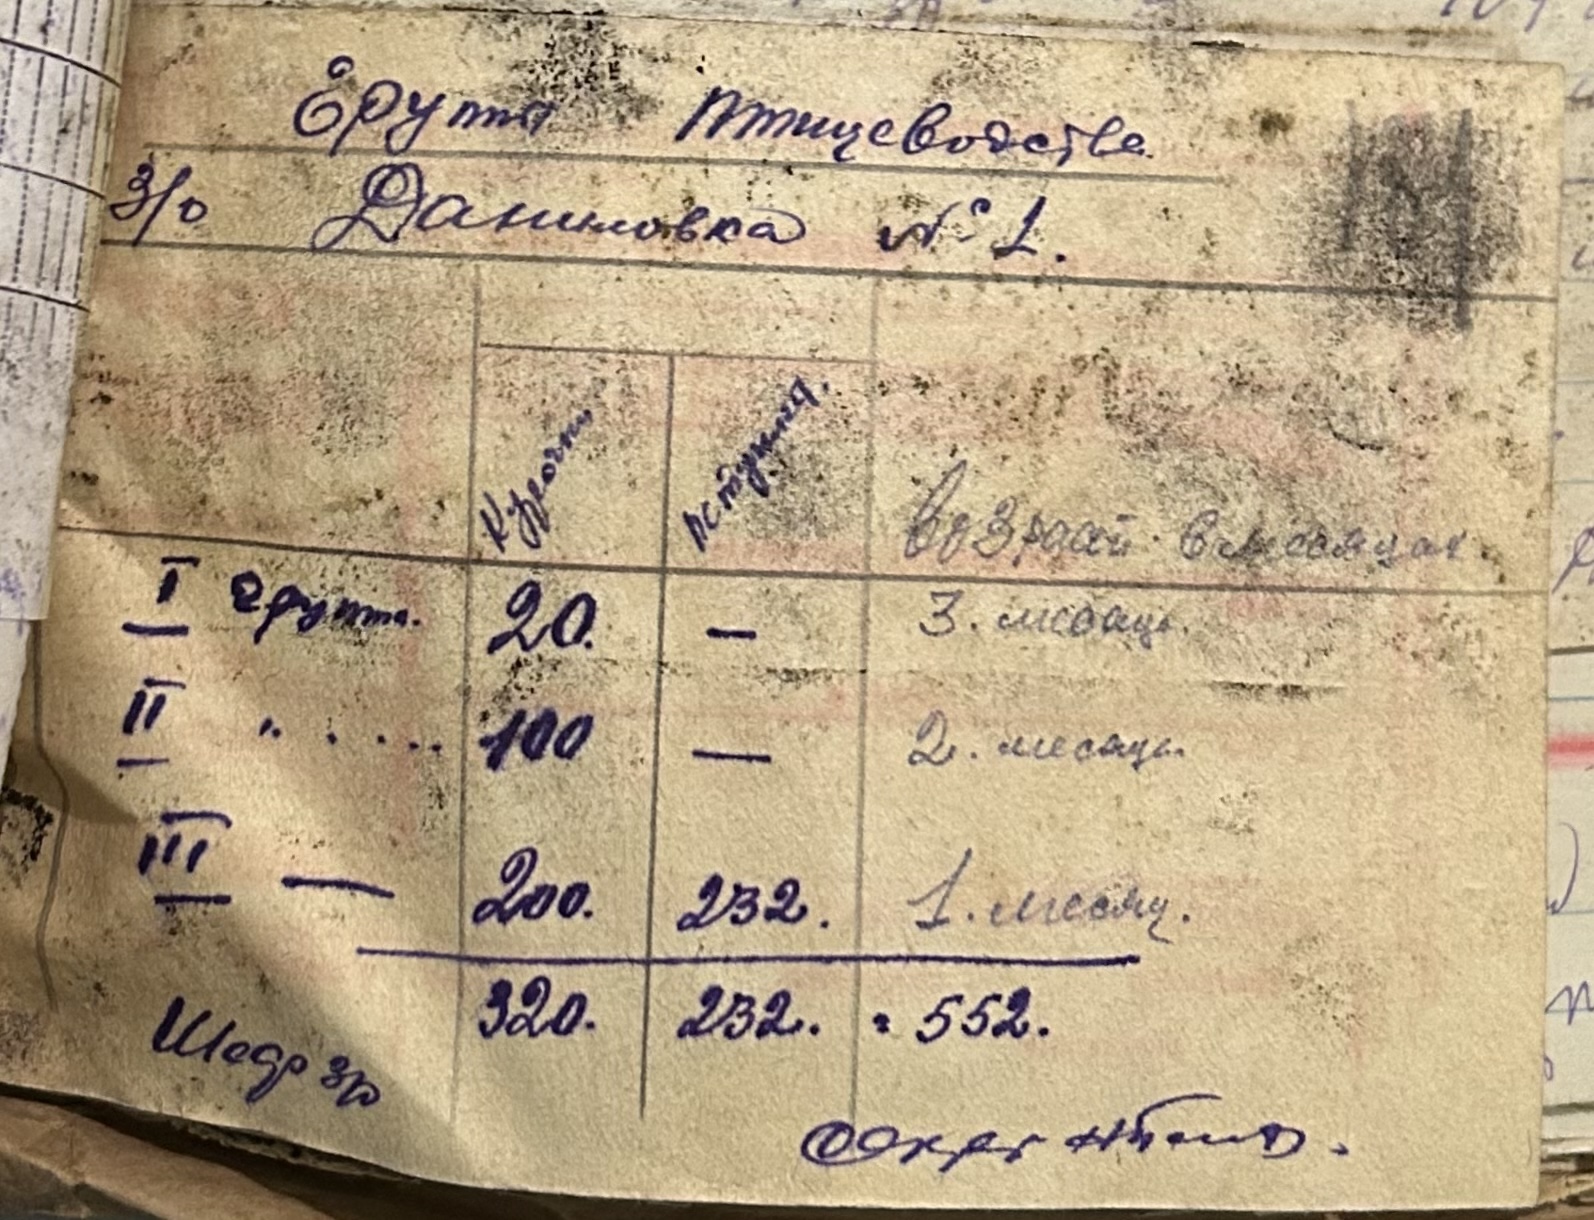 Группа Птицеводства
З/о Даниловка № 1.
Курочки Петушки. Возраст в месяцах.
I группа. 20. — 3. месяца.
II " . . . . . 100 — 2. месяца.
III — 200. 232. 1. месяц.
320. 232. = 552.
з/о